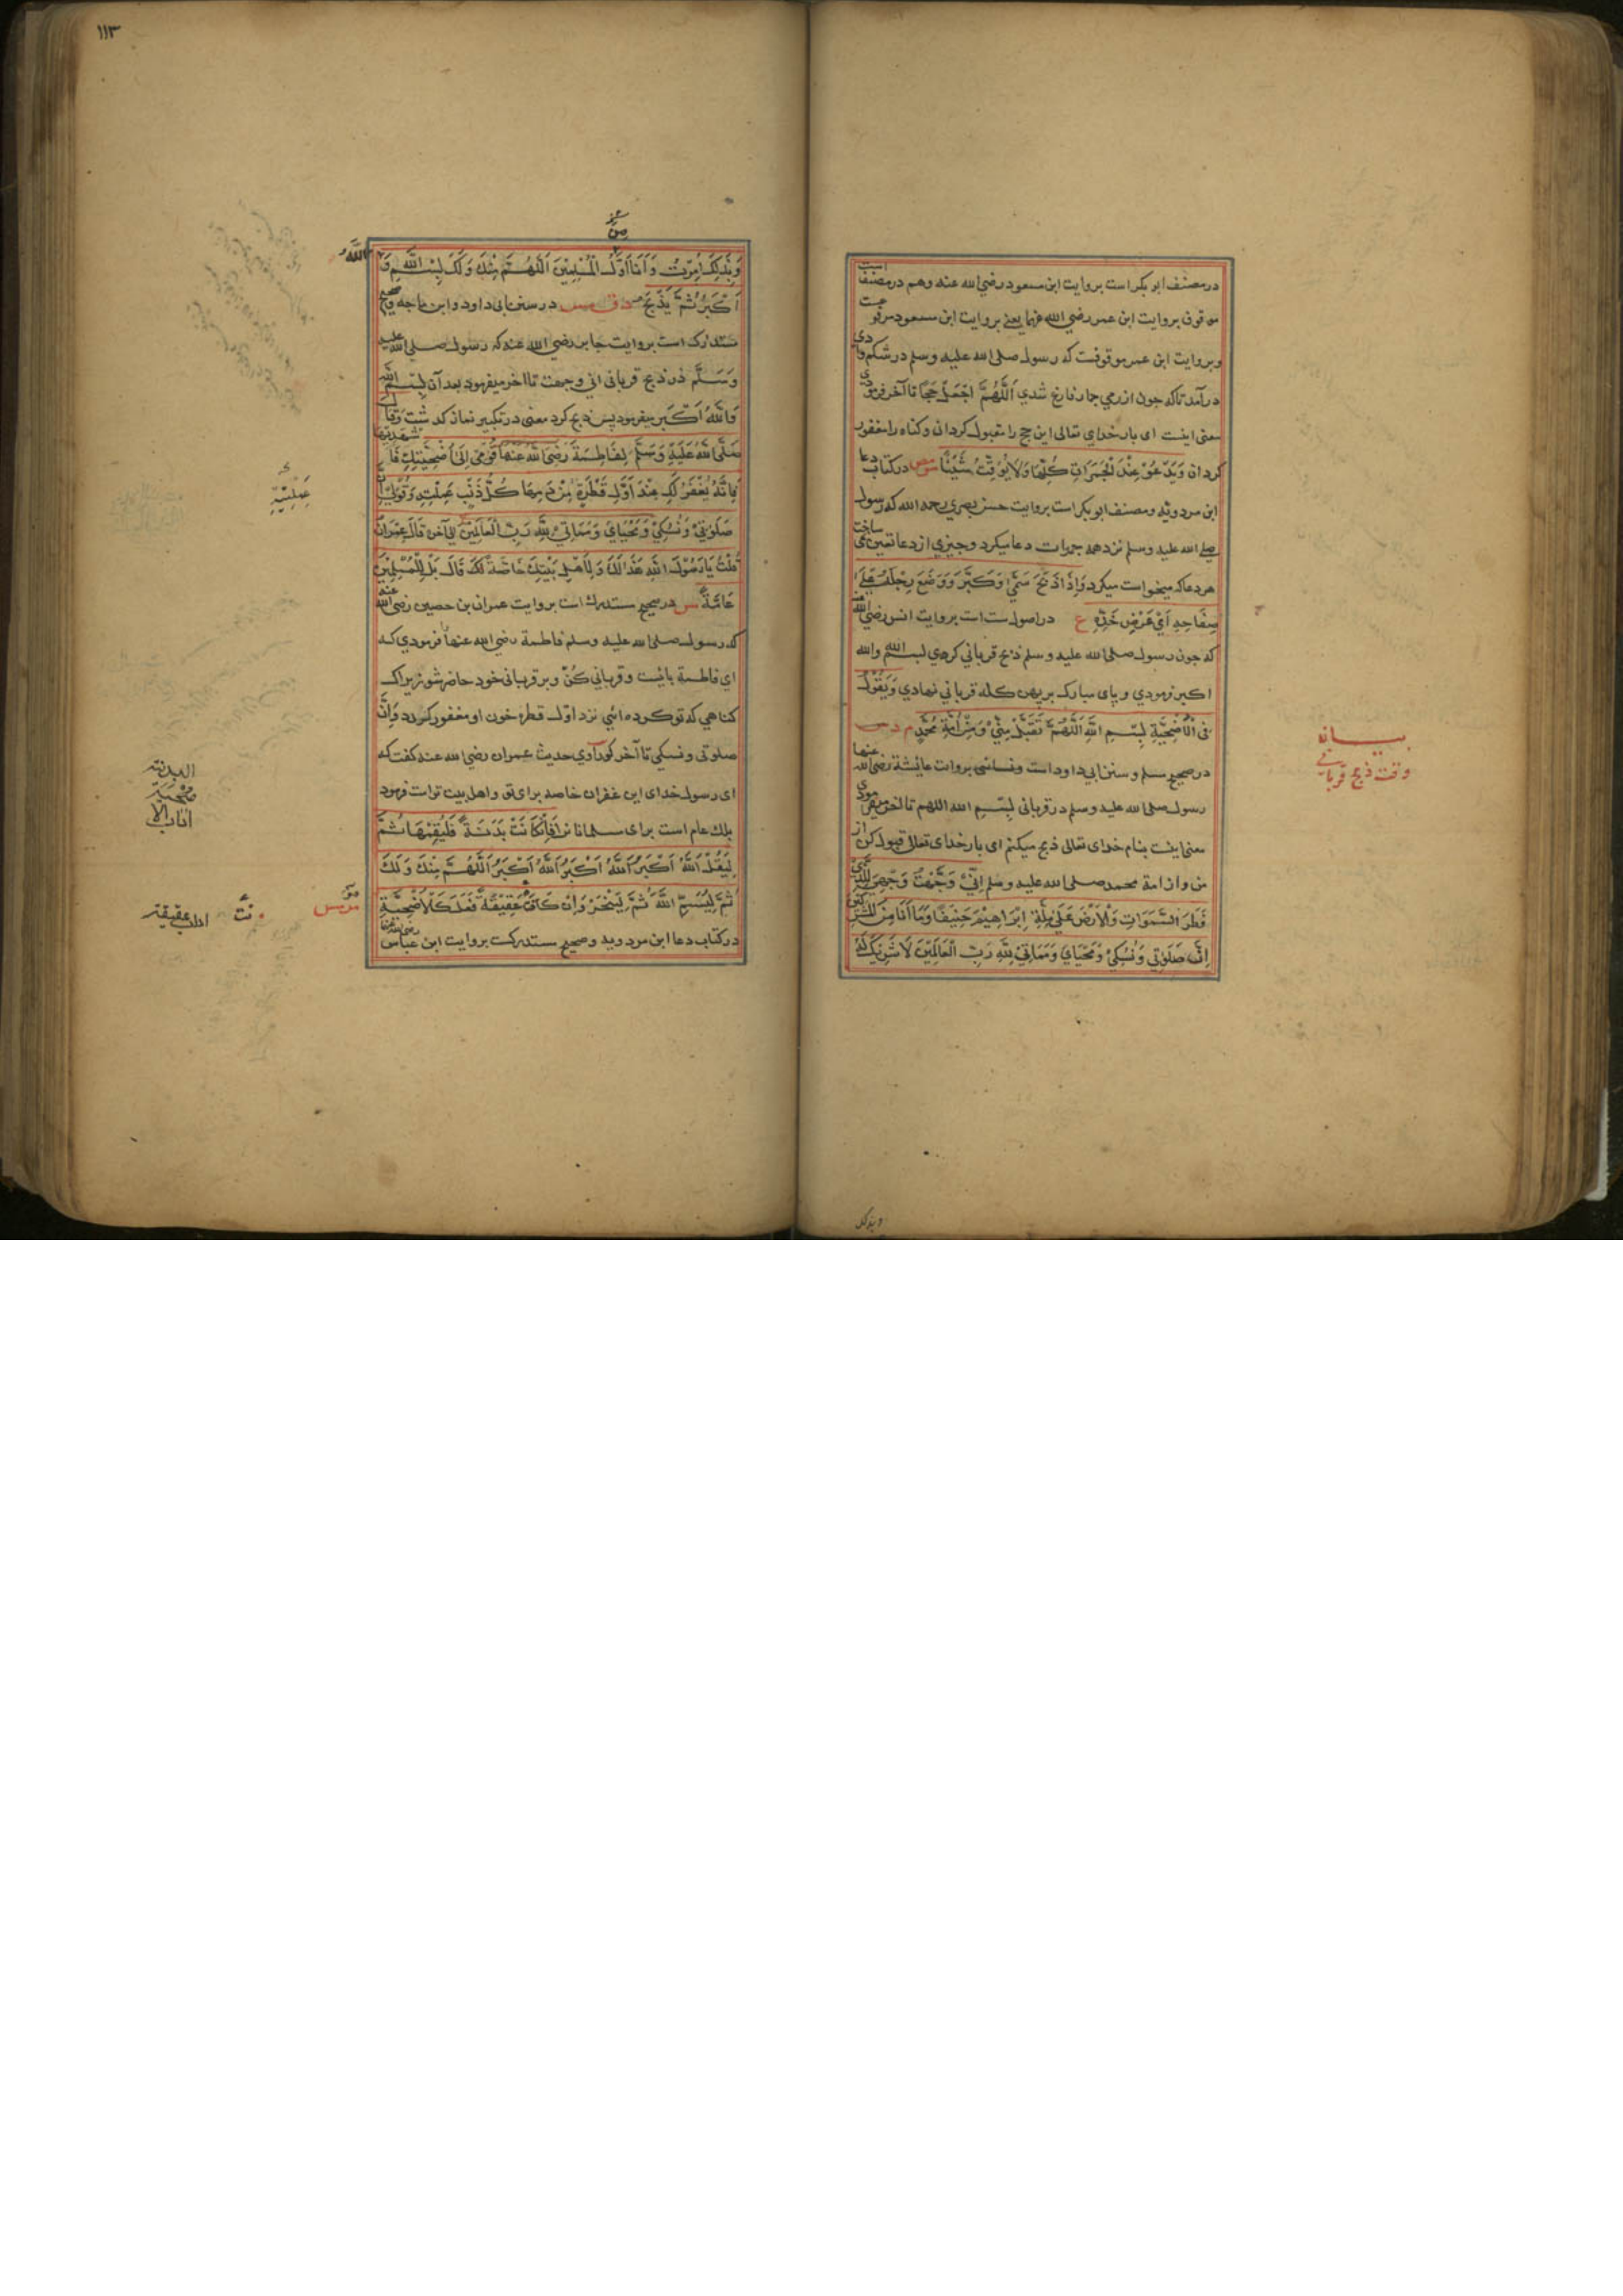 در مصنف ابو بکر است بروایت ابن مسعود رضی الله عنه وهم در مصنف است
موقوف بروایت ابن عمر رضی الله عنهما یعنے بروایت ابن مسعود مرفو
وبروایت ابن عمر موقوفست که رسول صلی الله علیه وسلم در شکم وادی
در آمد تاکه چون از رمی جمار فارغ شدی اَللّٰهُمَّ اجْعَلْ حَجًّا تا آخر فرمودی
معنی اینست ای بار خدای تعالی این حج را مقبول کردان وکناه را مغفور
کردان وَيَدْعُوْ عِنْدَ الْجَمَرَاتِ كُلِّهَا وَلَا يُوَقِّتُ شَيْئًا مو مص در کتاب دعا
ابن مردویه ومصنف ابو بکر است بروایت حسن بصری رحمه الله که رسول
صلی الله علیه وسلم نزد همه جمرات دعا میکرد وچیزی از دعا تعین نمی ساخت
هر دعا که میخواست میکرد وَاِذَا ذَبَحَ سَمّٰى وَكَبَّرَ وَوَضَعَ رِجْلَهُ عَلٰى
صِفَاحِهِ اَيْ عَرْضِ خَدِّهِ ع در اصول ست است بروایت انس رضی الله عنه
که چون رسول صلی الله علیه وسلم ذبح قربانی کردی بسم الله والله
اکبر فرمودی وپای مبارک بر پهن کله قربانی نهادی وَيَقُوْلُ
فِى الْاُضْحِيَّةِ بِسْمِ اللهِ اَللّٰهُمَّ تَقَبَّلْ مِنِّيْ وَمِنْ اُمَّةِ مُحَمَّدٍ م د س
در صحیح مسلم وسنن ابی داود است ونسائی بروایت عایشة رضی الله عنها
رسول صلی الله علیه وسلم در قربانی بِسْمِ الله اللهم تا آخر میفرمودی
معنی اینست بنام خدای تعالی ذبح میکنم ای بار خدای تعالی قبول کن از
من واز امة محمد صلی الله علیه وسلم اِنِّيْ وَجَّهْتُ وَجْهِيَ لِلَّذِيْ
فَطَرَ السَّمٰوَاتِ وَالْاَرْضَ عَلٰى مِلَّةِ اِبْرَاهِيْمَ حَنِيْفًا وَمَا اَنَا مِنَ الْمُشْرِكِيْنَ
اِنَّ صَلٰوتِيْ وَنُسُكِيْ وَمَحْيَايَ وَمَمَاتِيْ لِلّٰهِ رَبِّ الْعَالَمِيْنَ لَا شَرِيْكَ لَهُ
بیان
وقت ذبح قربانی
وبذلک
١١٣
مِنَ
وَبِذٰلِكَ اُمِرْتُ وَاَنَا اَوَّلُ الْمُسْلِمِيْنَ اَللّٰهُمَّ مِنْكَ وَلَكَ بِسْمِ اللهِ وَاللهُ
اَكْبَرُ ثُمَّ يَذْبَحُ د ق مس در سنن ابی داود وابن ماجه وصحیح
مستدرک است بروایت جابر رضی الله عنه که رسول صلی الله علیه
وَسَلَّم در ذبح قربانی انی وجهت تا اخر میفرمود بعد آن بِسْمِ الله
وَاللهُ اَكْبَر میفرمود پس ذبح کرد معنی در تکبیر نماز کذشت وَقَالَ
صَلَّى اللهُ عَلَيْهِ وَسَلَّمَ لِفَاطِمَةَ رَضِيَ اللهُ عَنْهَا قُوْمِيْ اِلٰى اُضْحِيَّتِكِ فَاشْهَدِيْهَا
فَاِنَّهُ يُغْفَرُ لَكِ عِنْدَ اَوَّلِ قَطْرَةٍ مِنْ دَمِهَا كُلُّ ذَنْبٍ عَمِلْتِهِ وَقُوْلِيْ اِنَّ
صَلٰوتِيْ وَنُسُكِيْ وَمَحْيَايَ وَمَمَاتِيْ لِلّٰهِ رَبِّ الْعَالَمِيْنَ اِلى آخره قَالَ عِمْرَانُ
قُلْتُ يَا رَسُوْلَ اللهِ هٰذَا لَكَ وَلِاَهْلِ بَيْتِكَ خَاصَّةً لَكَ قَالَ بَلْ لِلْمُسْلِمِيْنَ
عَامَّةً مس در صحیح مستدرک است بروایت عمران بن حصین رضی الله عنه
که رسول صلی الله علیه وسلم فاطمة رضی الله عنها فرمودی که
ای فاطمة بایست وقربانی کُنْ وبر قربانی خود حاضر شو زیراک
کناهی که تو کرده ائی نزد اوّل قطرهٔ خون او مغفور کردد وَاِنَّ
صلوتی ونسکی تا آخر کو راوی حدیث عمران رضی الله عنه کفت که
ای رسول خدای این غفران خاصه برای تو واهل بیت تو است فرمود
بلک عام است برای مسلمانان فَاِنْ كَانَتْ بَدَنَةً فَلْيُقِمْهَا ثُمَّ
لِيَقُلْ اَللهُ اَكْبَرُ اَللهُ اَكْبَرُ اَللهُ اَكْبَرُ اَللّٰهُمَّ مِنْكَ وَلَكَ
ثُمَّ لِيُسَمِّ اللهَ ثُمَّ لِيَنْحَرْ وَاِنْ كَانَ عَقِيْقَةً فَعَلَ كَالْاُضْحِيَّةِ
در کتاب دعا ابن مردویه وصحیح مستدرکست بروایت ابن عباس رضی الله عنهما
عَمِلْتِيْهِ
البدنة